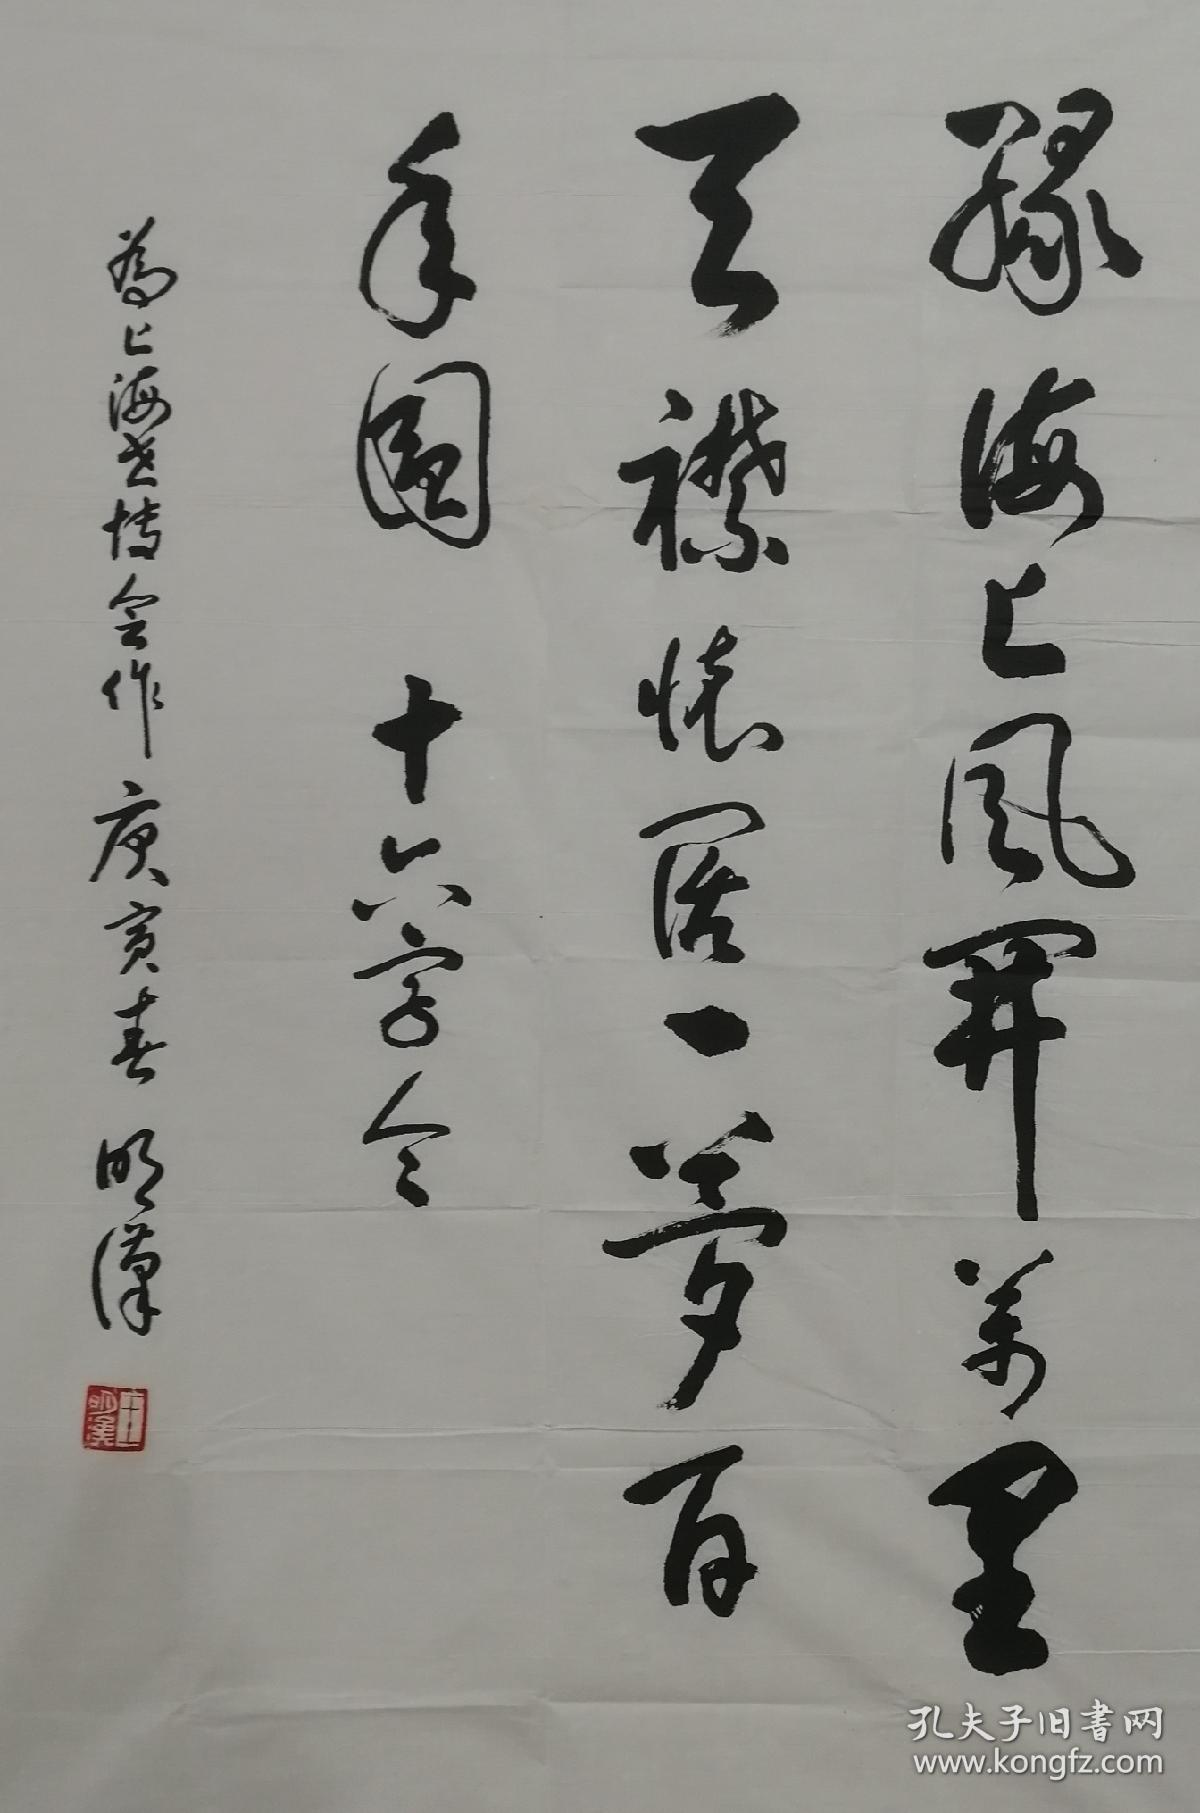 緣海上風開萬里
天襟懷闊一夢百
年圓 十六字令
為上海世博會作 庚寅春 明漢
孔夫子旧書网
www.kongfz.com